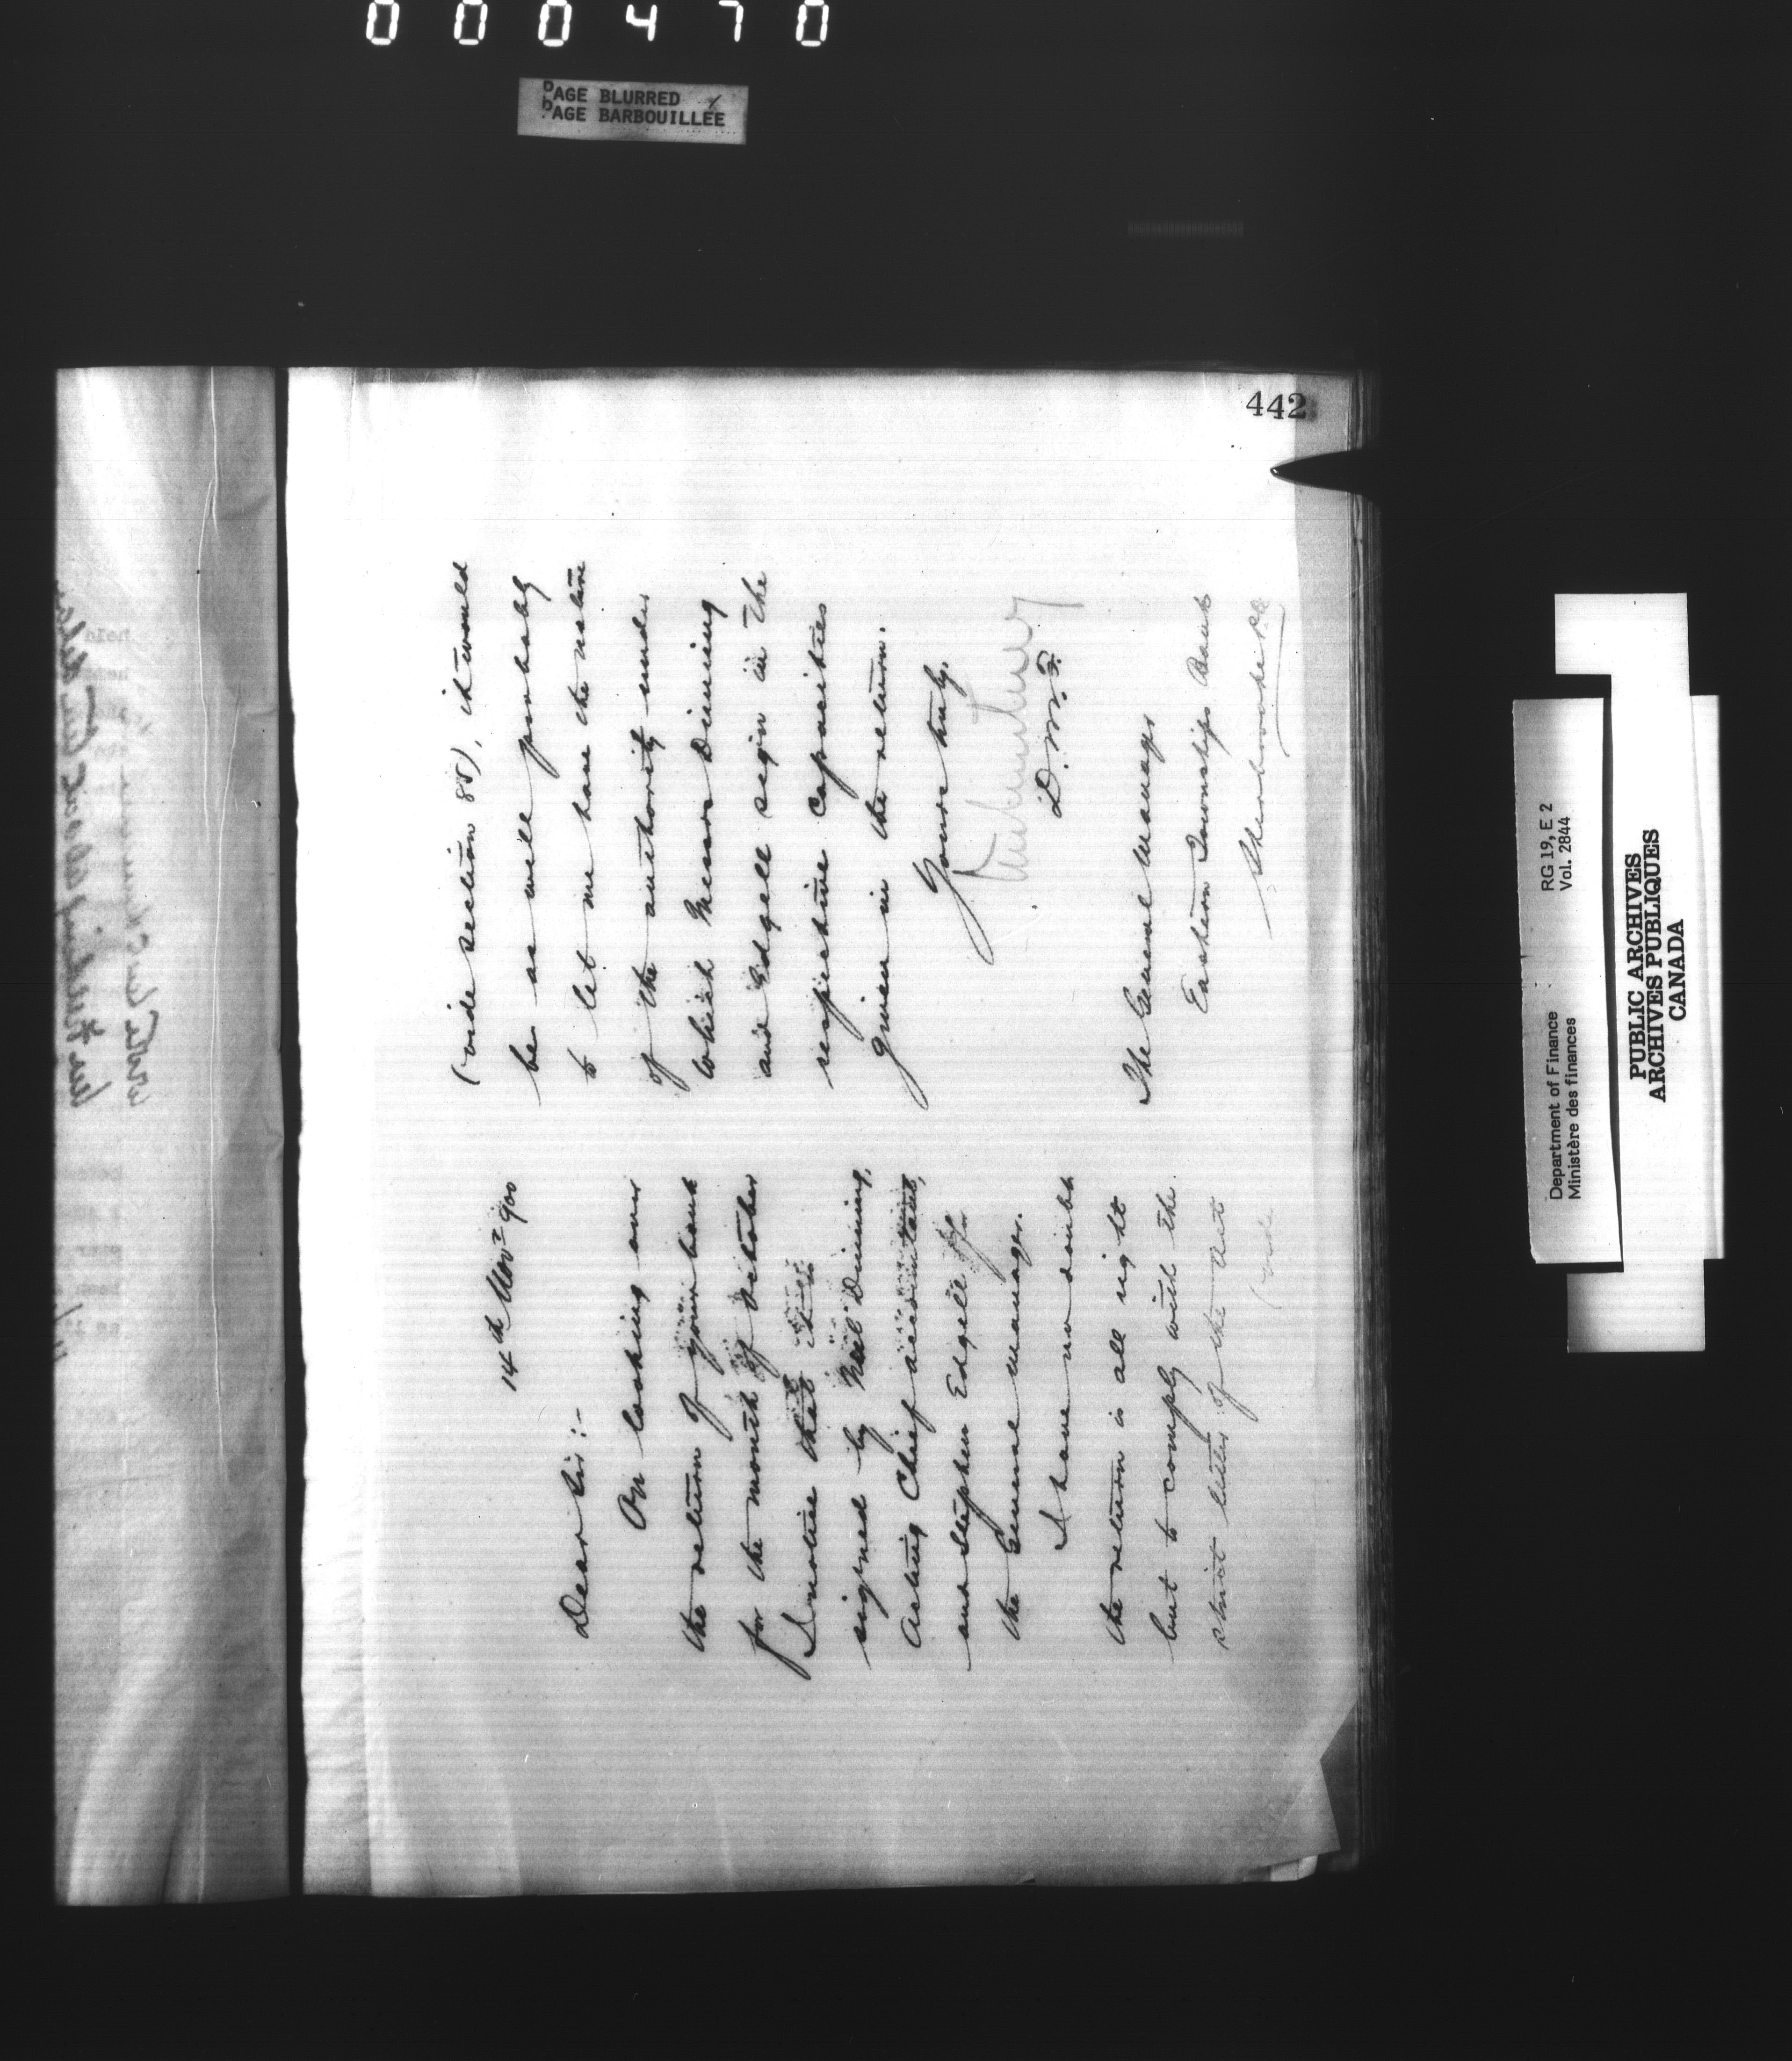 000470
PAGE BLURRED
PAGE BARBOUILLÉE
442
14th Nov 900
Dear Sir :-
On looking over
the return of your bank
for the month of October
I notice that it is
signed by Neil Dinning,
Acting Chief accountant,
and Stephen Edgell for
the General Manager.
I have no doubt
the return is all right
but to comply with the
strict letter of the Act
(vide
(vide section 85), it would
be as well probably
to let me have the nature
of the authority under
which Messrs Dinning
and Edgell sign in the
respective capacities
given in the return.
Yours truly,
D.M.F.
The General Manager
Eastern Townships Bank
Sherbrooke P.Q.
Department of Finance
Ministère des finances
RG 19, E 2
Vol. 2844
PUBLIC ARCHIVES
ARCHIVES PUBLIQUES
CANADA